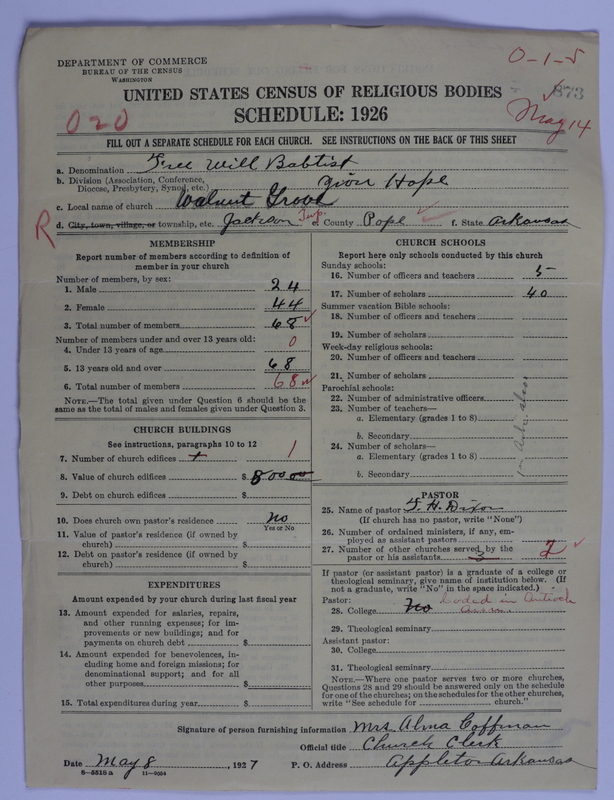 DEPARTMENT OF COMMERCE
BUREAU OF THE CENSUS
WASHINGTON
0-1-5
873
May 14
020
UNITED STATES CENSUS OF RELIGIOUS BODIES
SCHEDULE: 1926
FILL OUT A SEPARATE SCHEDULE FOR EACH CHURCH. SEE INSTRUCTIONS ON THE BACK OF THIS SHEET
a. Denomination Free Will Babtist
b. Division (Association, Conference, Diocese, Presbytery, Synod, etc.) Zion Hope
c. Local name of church Walnut Grove
R
d. City, town, village, or township, etc. Jackson Twp. e. County Pope f. State Arkansas
MEMBERSHIP
Report number of members according to definition of
member in your church
Number of members, by sex:
1. Male 24
2. Female 44
3. Total number of members 68
Number of members under and over 13 years old:
4. Under 13 years of age 0
5. 13 years old and over 68
6. Total number of members 68
NOTE.—The total given under Question 6 should be
the same as the total of males and females given under Question 3.
CHURCH BUILDINGS
See instructions, paragraphs 10 to 12
7. Number of church edifices 1
8. Value of church edifices $ 800 00
9. Debt on church edifices $
10. Does church own pastor's residence No
Yes or No
11. Value of pastor's residence (if owned by
church) $
12. Debt on pastor's residence (if owned by
church) $
EXPENDITURES
Amount expended by your church during last fiscal year
13. Amount expended for salaries, repairs,
and other running expenses; for im-
provements or new buildings; and for
payments on church debt $
14. Amount expended for benevolences, in-
cluding home and foreign missions; for
denominational support; and for all
other purposes $
15. Total expenditures during year $
CHURCH SCHOOLS
Report here only schools conducted by this church
Sunday schools:
16. Number of officers and teachers 5
17. Number of scholars 40
Summer vacation Bible schools:
18. Number of officers and teachers
19. Number of scholars
Week-day religious schools:
20. Number of officers and teachers
21. Number of scholars
Parochial schools:
22. Number of administrative officers
23. Number of teachers—
a. Elementary (grades 1 to 8)
b. Secondary
24. Number of scholars—
a. Elementary (grades 1 to 8)
b. Secondary
PASTOR
25. Name of pastor T. H. Dixon
(If church has no pastor, write "None")
26. Number of ordained ministers, if any, em-
ployed as assistant pastors
27. Number of other churches served by the
pastor or his assistants 3 2
If pastor (or assistant pastor) is a graduate of a college or
theological seminary, give name of institution below. (If
not a graduate, write "No" in the space indicated.)
Pastor:
28. College No Coded in Antioch
29. Theological seminary
Assistant pastor:
30. College
31. Theological seminary
NOTE.—Where one pastor serves two or more churches,
Questions 28 and 29 should be answered only on the schedule
for one of the churches; on the schedules for the other churches,
write "See schedule for church."
Signature of person furnishing information Mrs. Alma Coffman
Official title Church Clerk
Date May 8, 1927 P. O. Address Appleton Arkansas
8-5515 a 11-9284